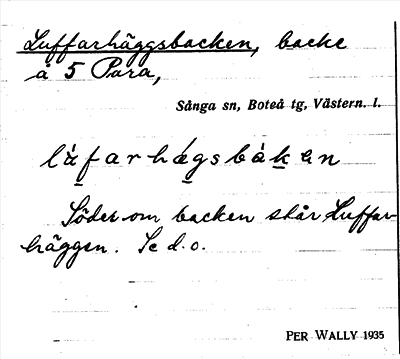 Luffarhäggsbacken, backe
å 5 Para,
Sånga sn, Boteå tg, Västern. l.
Söder om backen står Luffar-
häggen. Se d. o.
PER WALLY 1935